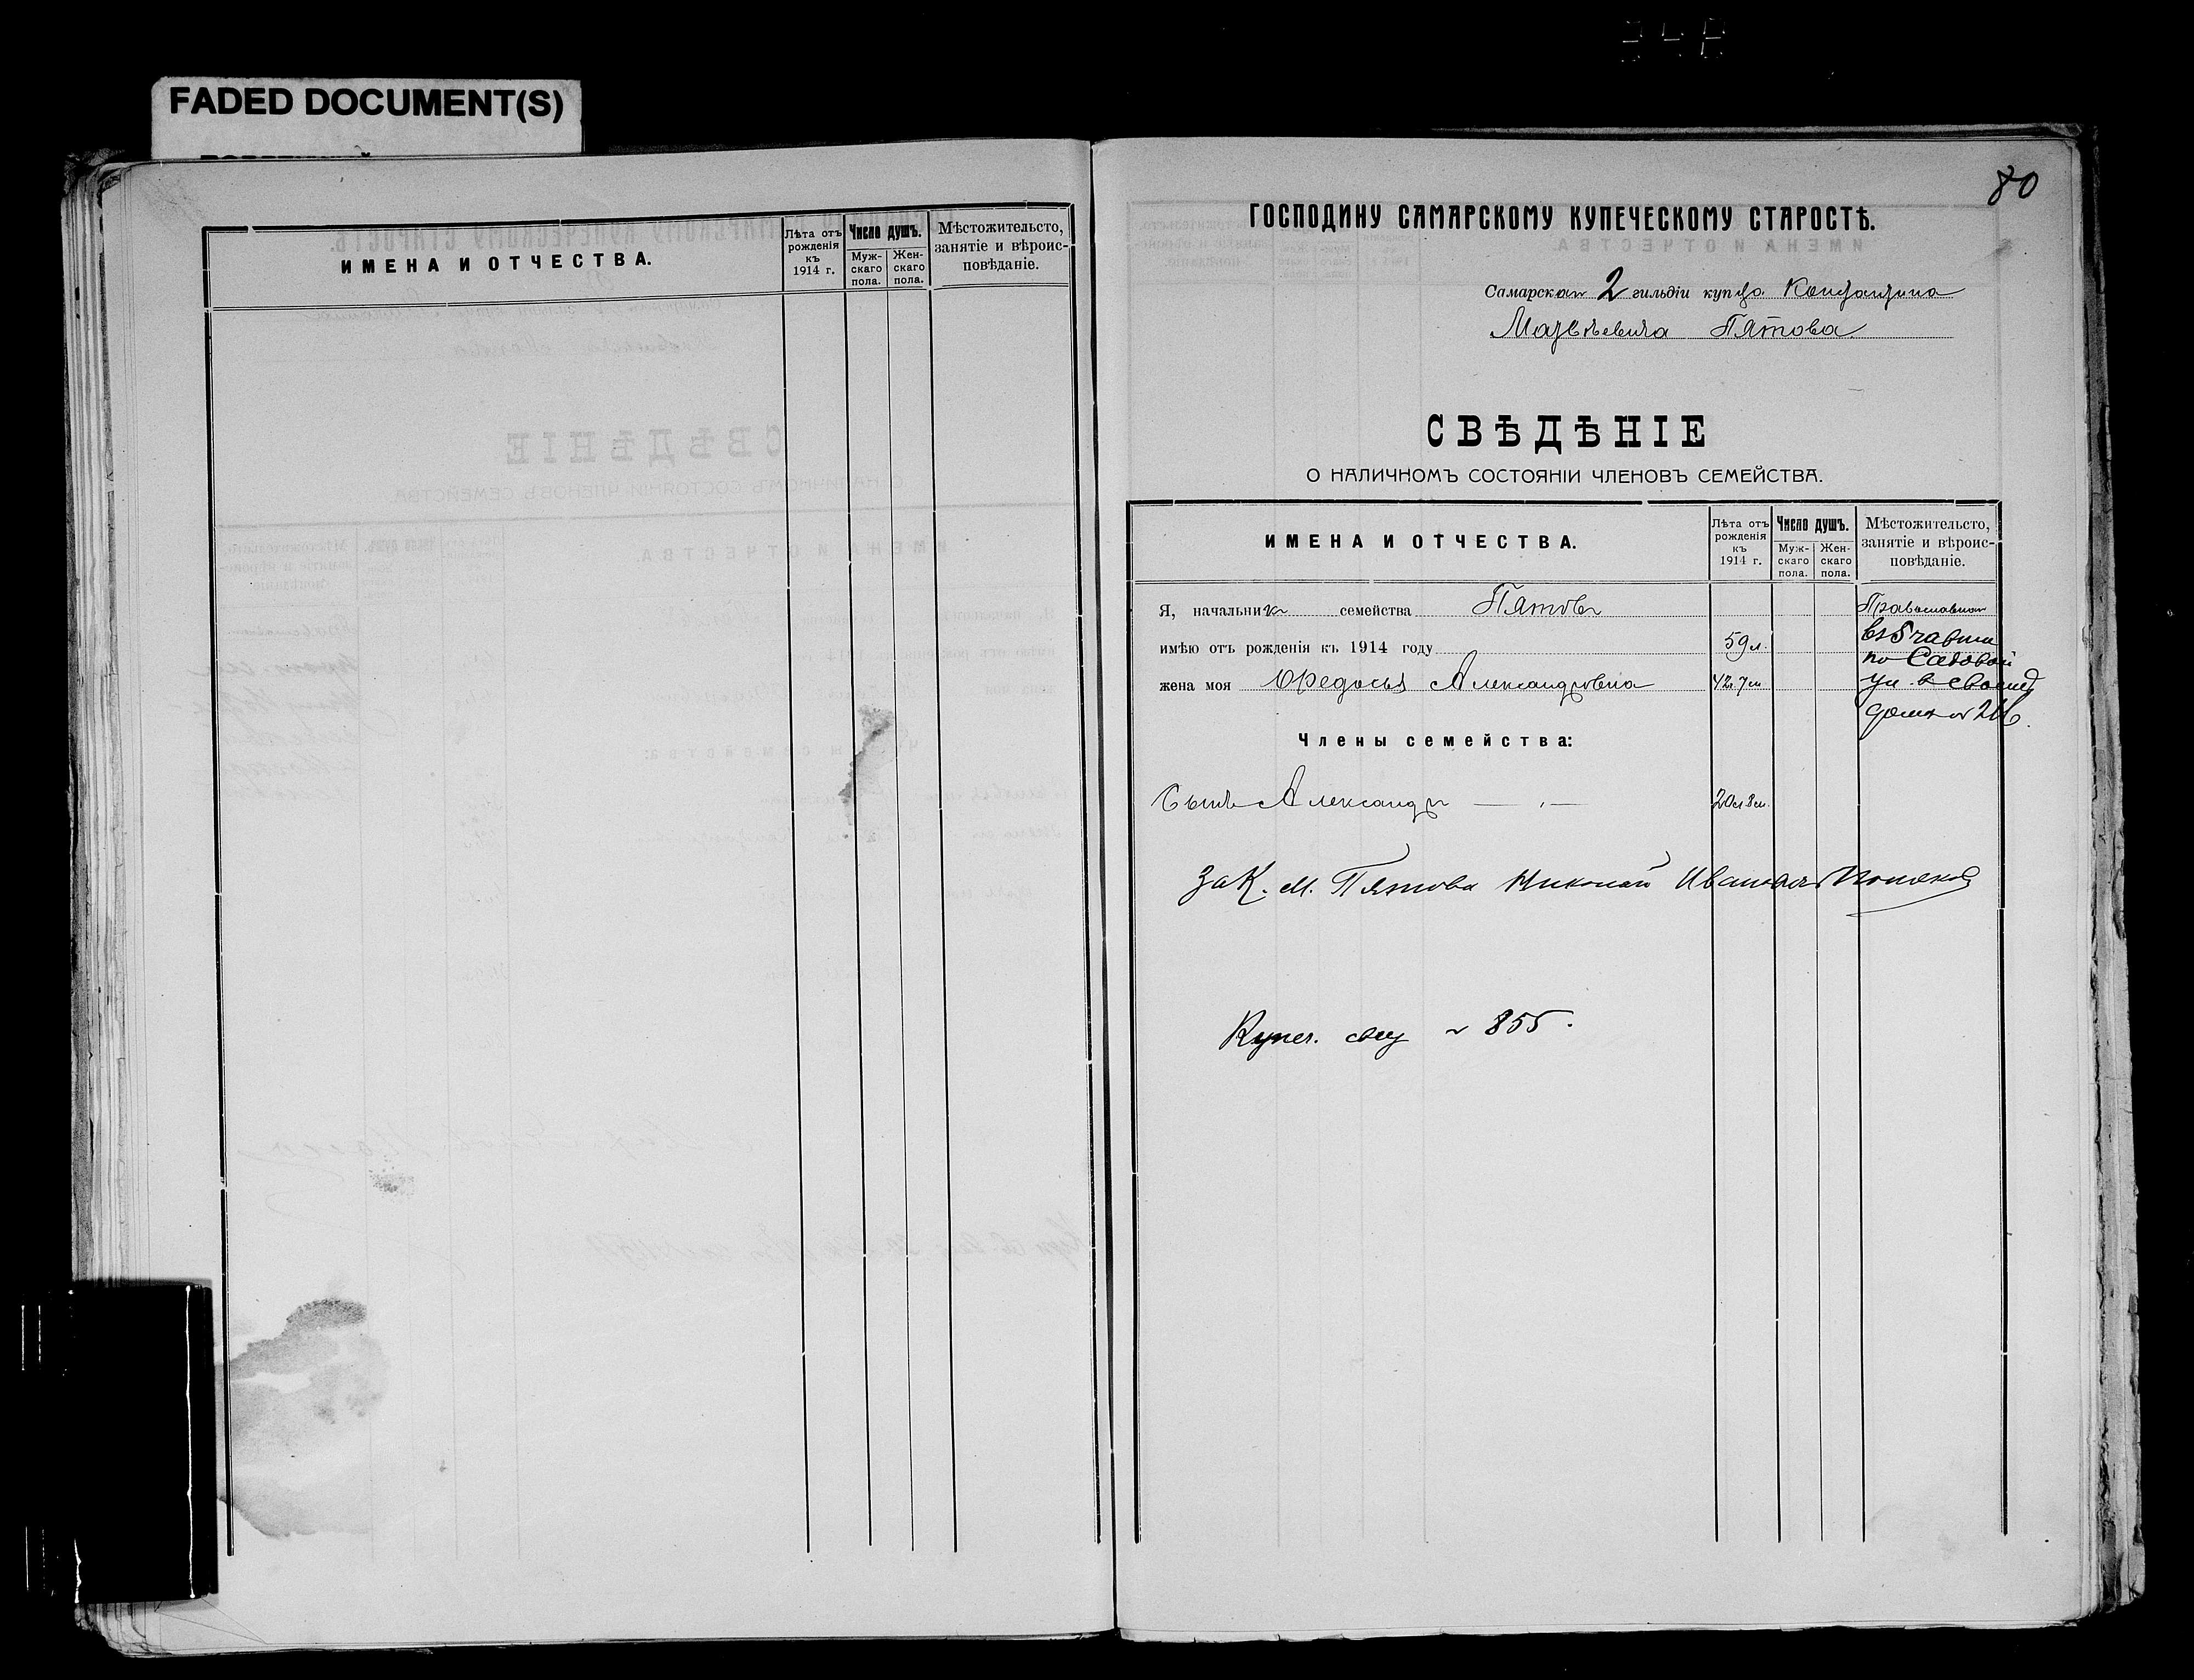 FADED DOCUMENT(S)
ИМЕНА И ОТЧЕСТВА.
Лѣта отъ рожденія къ 1914 г.
Число душъ.
Муж-скаго пола.
Жен-скаго пола.
Мѣстожительсто, занятіе и вѣроис-повѣданіе.
80
ГОСПОДИНУ САМАРСКОМУ КУПЕЧЕСКОМУ СТАРОСТѢ.
Самарскаго 2 гильдіи купца Константина
Матвѣевича Пятова
СВѢДѢНІЕ
О НАЛИЧНОМЪ СОСТОЯНІИ ЧЛЕНОВЪ СЕМЕЙСТВА.
ИМЕНА И ОТЧЕСТВА.
Лѣта отъ рожденія къ 1914 г.
Число душъ.
Муж-скаго пола.
Жен-скаго пола.
Мѣстожительсто, занятіе и вѣроис-повѣданіе.
Я, начальникъ семейства Пятовъ
имѣю отъ рожденія къ 1914 году 59 л.
жена моя Федосья Александровна 42 л. 7 м.
Православнаго
въ 5 части
по Садовой
ул. в своемъ
домѣ № 216.
Члены семейства:
Сынъ Александръ — „ — 20 л 8 м.
За К. М. Пятова Николай Ивановъ
Купеч. свид № 855.